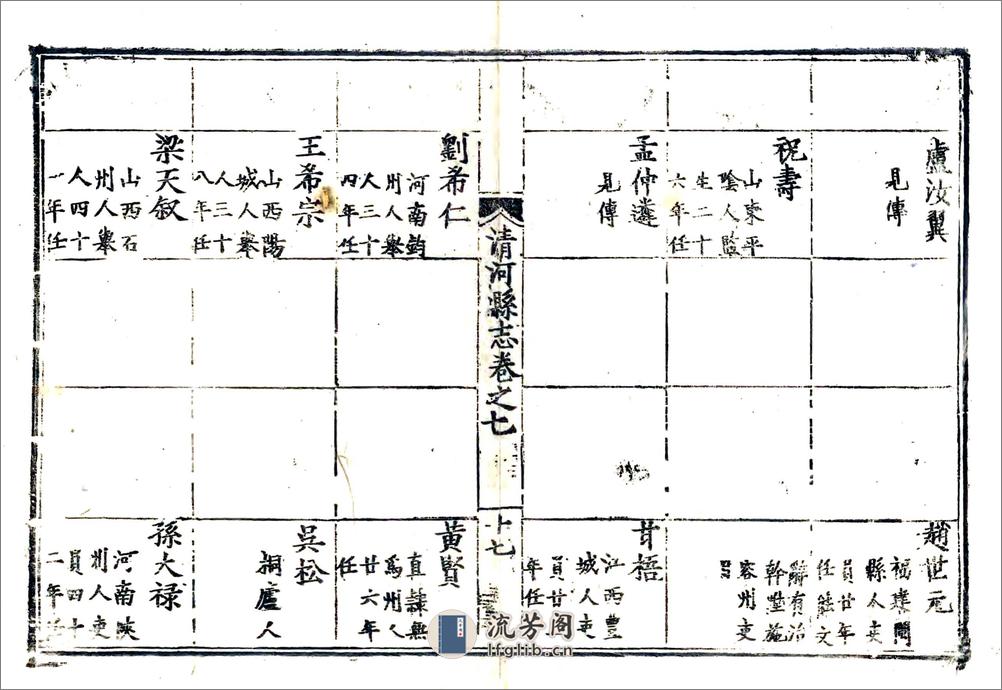 盧汝翼
見傳
祝壽
山東平
陰人監
生二十
六年任
孟仲遴
見傳
趙世元
福建閩
縣人吏
員廿年
任能文
辭有治
幹墅施
容州吏
目
甘梧
江西豐
城人吏
員廿
年任
清河縣志卷之七
十七
劉希仁
河南鈞
州人舉
人三十
四年任
王希宗
山西陽
城人舉
人三十
八年任
梁天叙
山西石
州人舉
人四十
一年任
黃賢
直隸無
為州人
廿六年
任
吳松
桐廬人
孫大祿
河南陜
州人吏
員四十
二年任
流芳阁
lfglib.cn